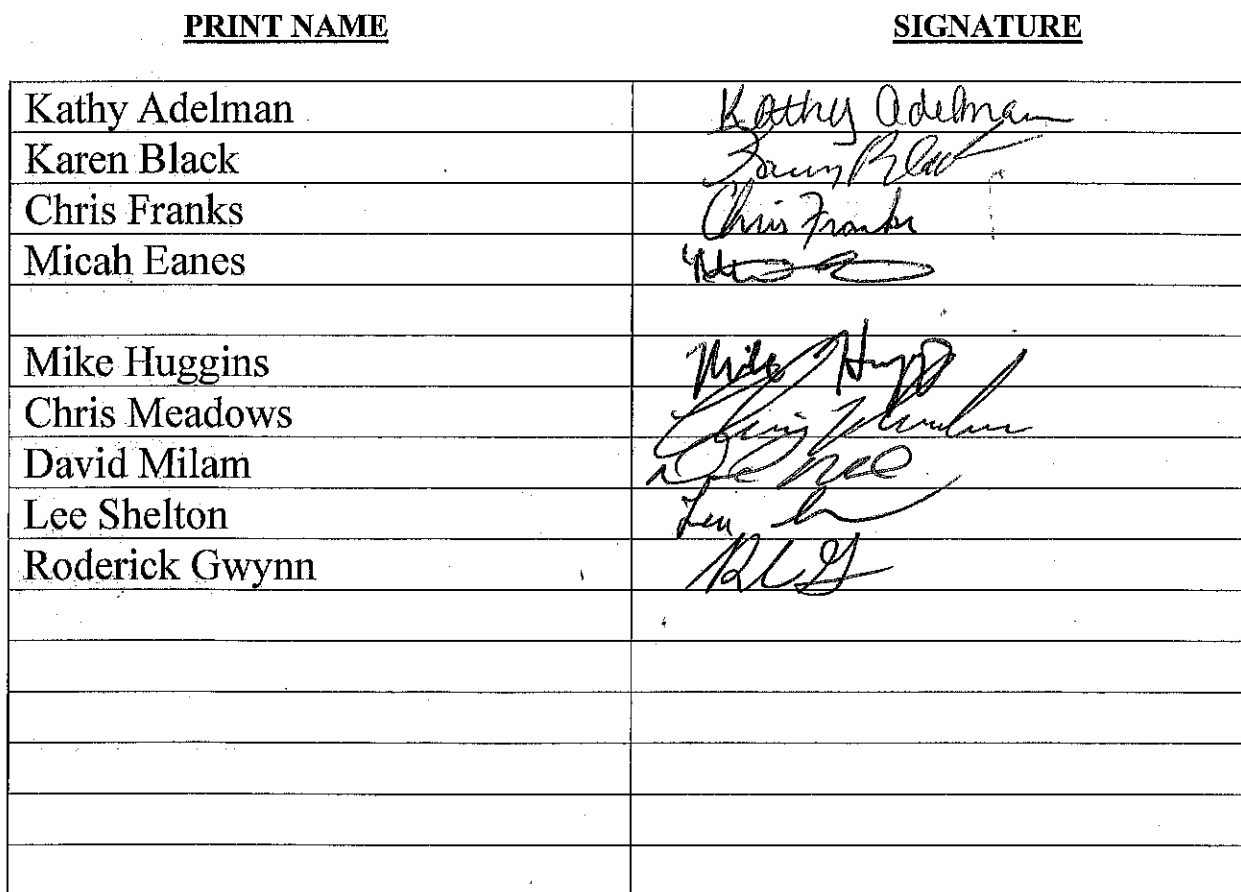 PRINT NAME SIGNATURE
Kathy Adelman Kathy Adelman
Karen Black
Chris Franks Chris Franks
Micah Eanes
Mike Huggins Mike
Chris Meadows Chris
David Milam
Lee Shelton Lee
Roderick Gwynn